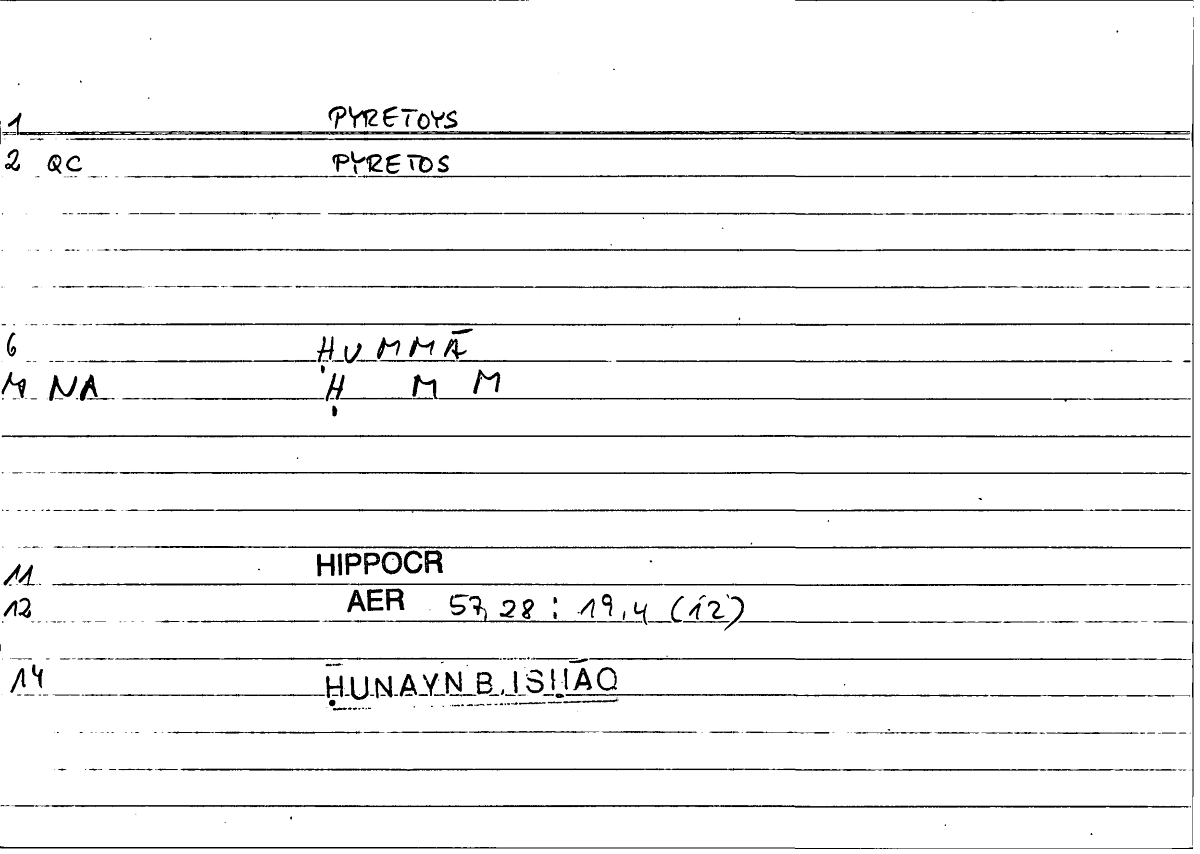 1 PYRETOYS
2 QC PYRETOS
6 ḤUMMĀ
M NA Ḥ M M
11 HIPPOCR
12 AER 57,28 : 19,4 (12)
14 ḤUNAYN B. ISḤĀQ